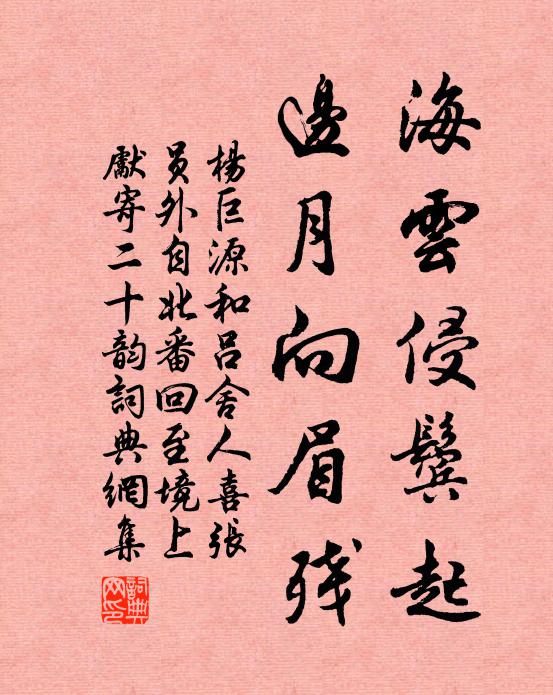 海雲侵鬓起
邊月向眉残
楊巨源和吕舍人喜張
员外自北番回至境上
獻寄二十韵詞典網集
詞典网印